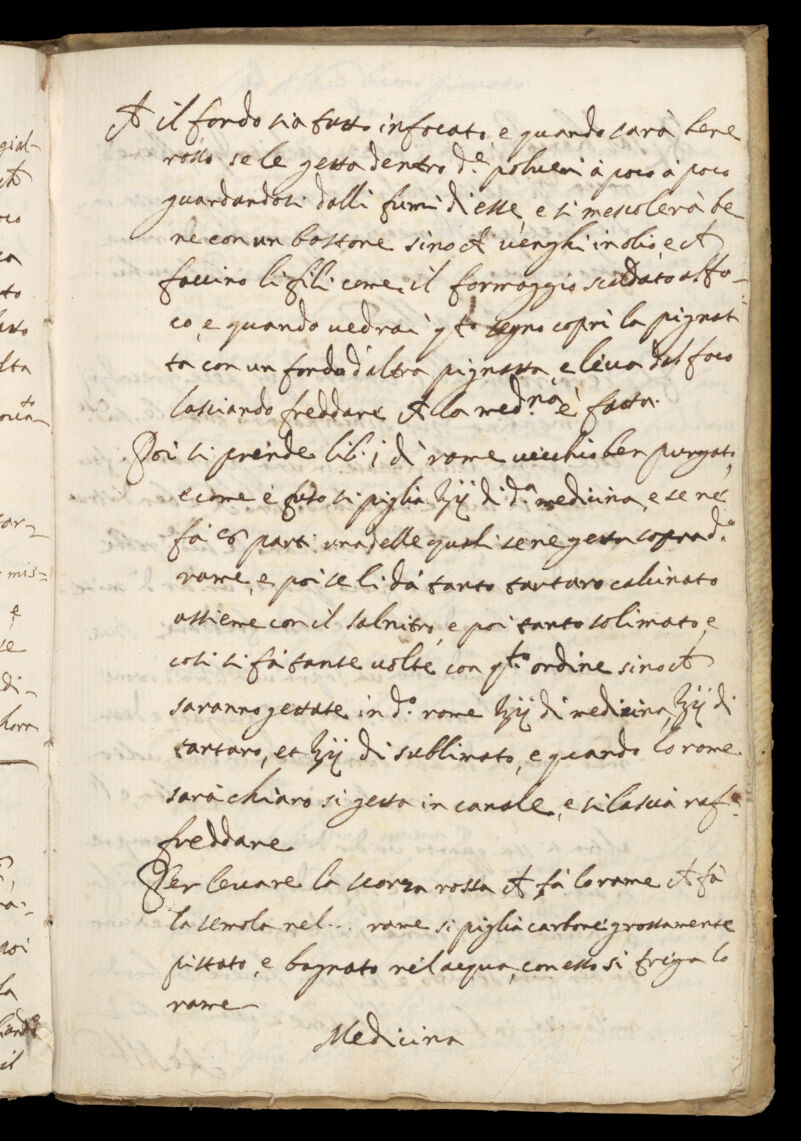 Ch il fondo sia tutto infocato, e quando sarà bene
rosso se le getta dentro d.e polueri à poco à poco
guardandosi dalli fumi di esse, e si mescolerà be
ne con un bastone sino Ch uenghi in olio, e Ch
faccino li fili come il formaggio scaldato al fo-
co, e quando uedrai q.to segno copri la pignat
ta con un fondo d'altra pignatta, e leua dal foco
lasciando freddare Ch la med.na è fatta.
Poi si prende lib. j di rame uecchio ben purgato,
e come è fuso si piglia ℥ij di d.a medicina, e se ne
fà 6 parti una delle quali se ne getta sopra d.o
rame, e poi se li dà tanto tartaro calcinato
assieme con il salnitro, e poi tanto solimato, e
cosi si fà tante uolte con q.to ordine sino Ch
saranno gettate in d.o rame ℥ij di medicina, ℥ij di
tartaro, et ℥ij di sublimato, e quando lo rame
sarà chiaro si getta in canale, e si lascia raf-
freddare
Per leuare la scorza rossa Ch fà lo rame Ch fà
la semola nel... rame si piglia carbone grossamente
pistato, e bagnato nel acqua, con esso si friga lo
rame
Medicina